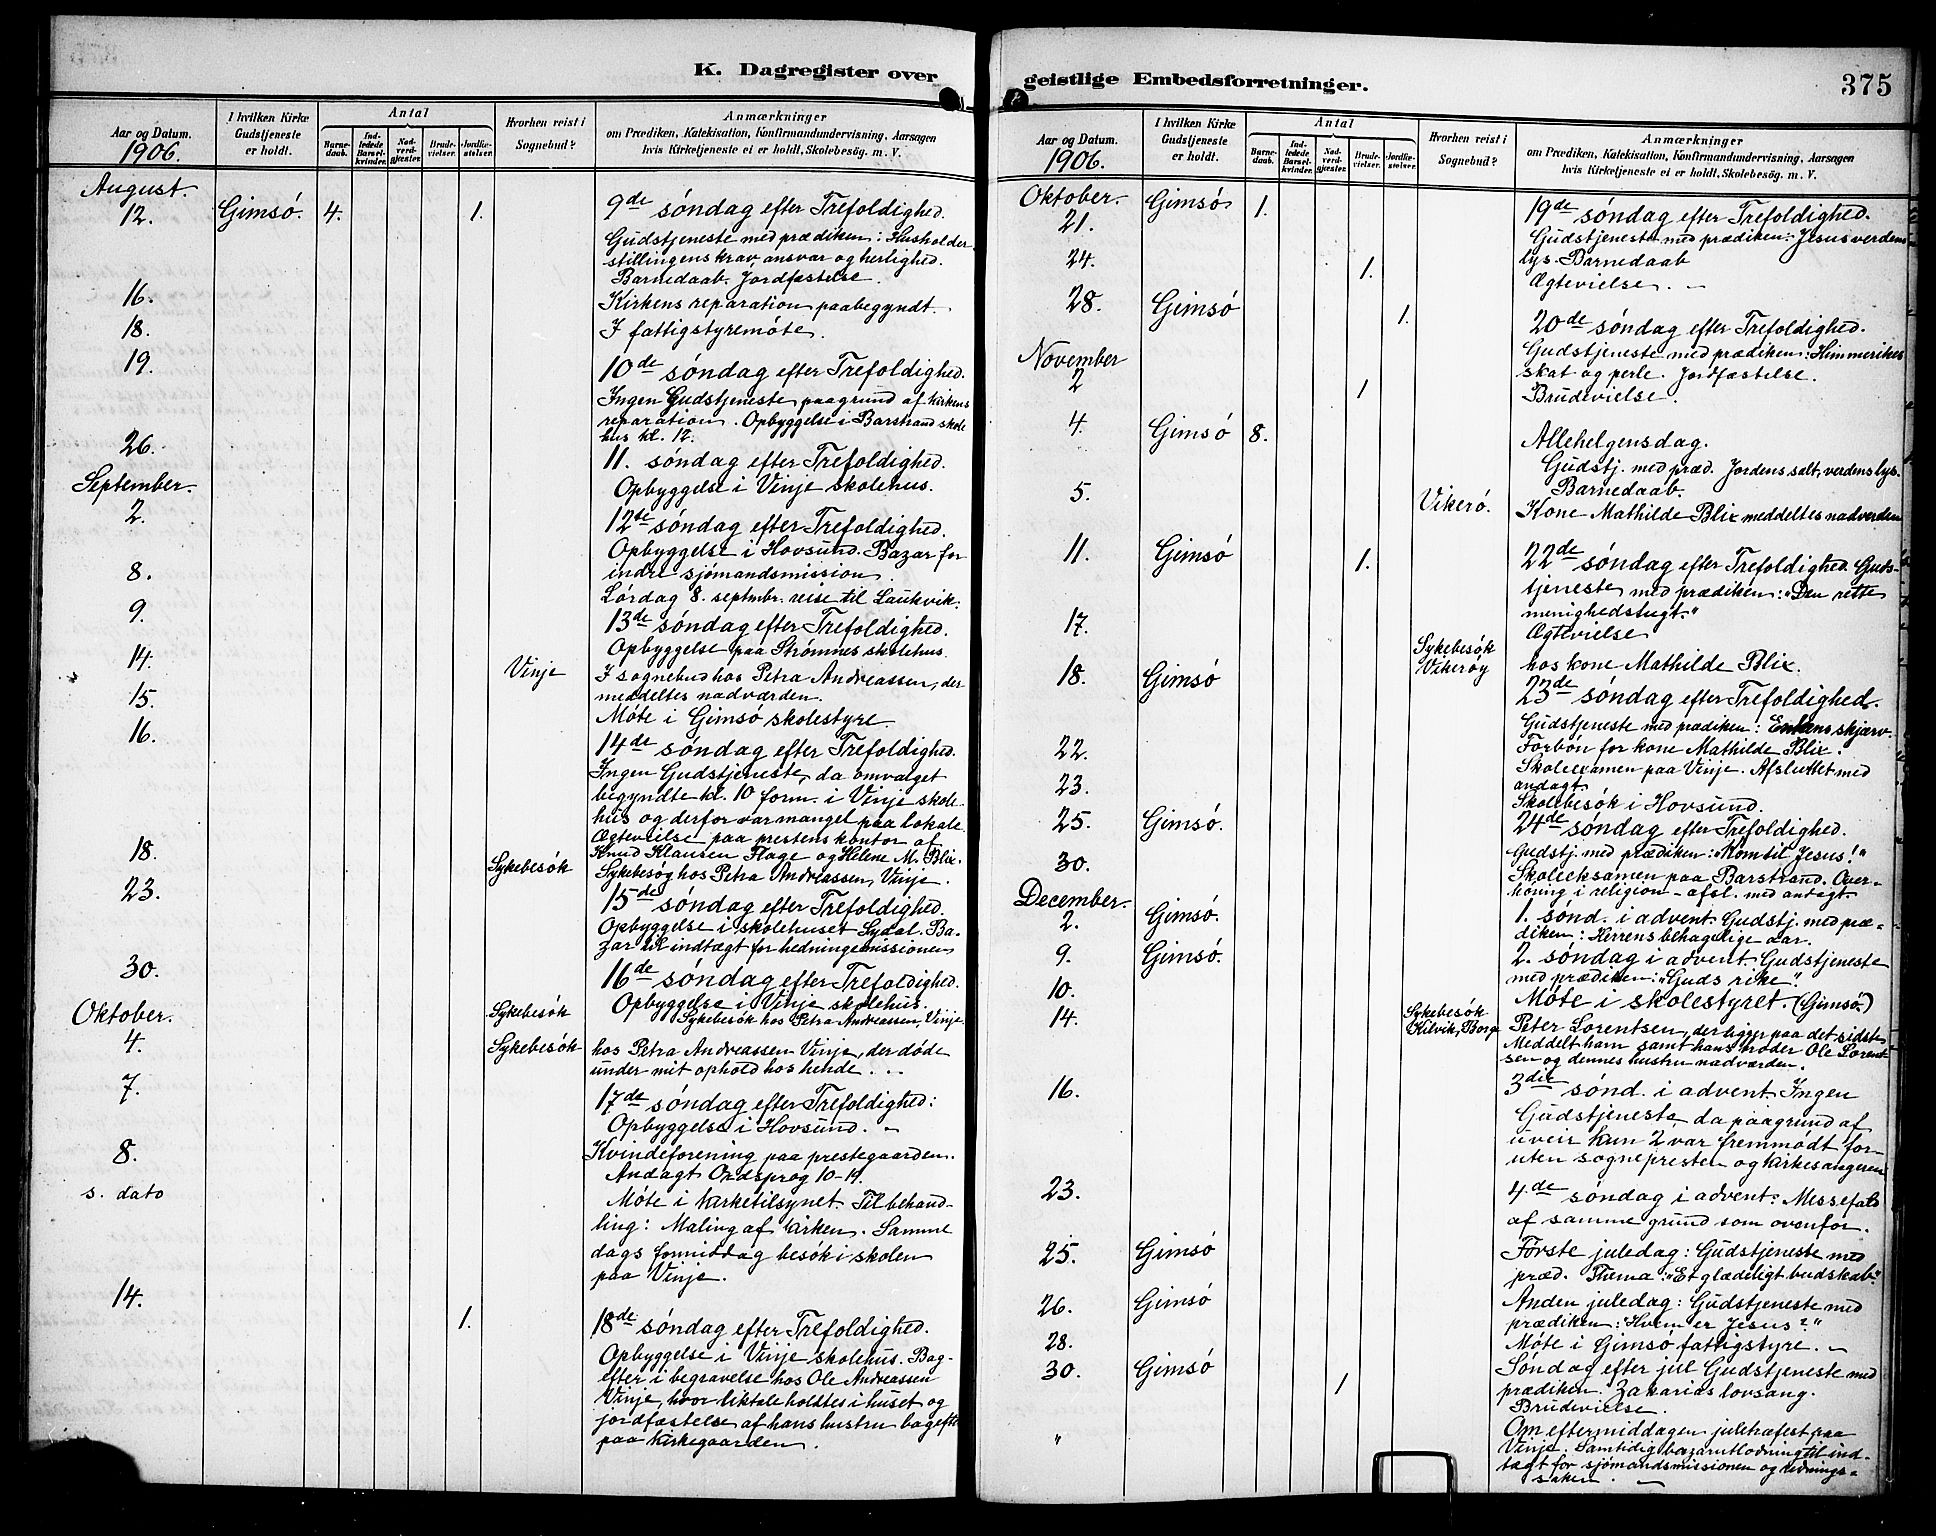 K. Dagregister over
Aar og Datum.
1906.
I hvilken Kirke
Gudstjeneste
er holdt.
Antal
Barne-
daab.
Ind-
ledede
Barsel-
kvinder.
Nad-
verd-
gjester.
Brude-
vielser.
Jordfæ-
stelser.
Hvorhen reist i
Sognebud?
Anmærkninger
om Prædiken, Katekisation, Konfirmandundervisning, Aarsagen
hvis Kirketjeneste ei er holdt, Skolebesög. m. V.
August.
12. Gimsó. 4. 1. 9de søndag efter Trefoldighed.
Gudstjeneste med prædiken: Husholder
stillingens krav ansvar og herlighed.
Barnedaab. Jordfæstelse.
16. Kirkens reparation paabegyndt.
18. I fattigstyremóte.
19. 10de søndag efter Trefoldighed.
Ingen Gudstjeneste paagrund af kirkens
reparation. Opbyggelse i Barstrand skole
hus kl. 12.
26. 11. søndag efter Trefoldighed.
Opbyggelse i Vinje skolehus.
September.
2. 12te søndag efter Trefoldighed.
Opbyggelse i Hovsund. Bazar for
indre sjómandsmission.
8. Lørdag 8. septmbr. reise til Laukvik.
9. 13de søndag efter Trefoldighed.
Opbyggelse paa Strømnes skolehus.
14. Vinje I sognebud hos Petra Andreassen, der
meddeltes nadværden.
15. Móte i Gimsó skolestyre.
16. 14de søndag efter Trefoldighed.
Ingen Gudstjeneste, da omvalget
begyndte kl. 10 form. i Vinje skole-
hus og derfor var mangel paa lokale.
Ægtevielse paa prestens kontor af
Knud Klausen Flage og Helene M. Blix.
18. Sykebesók Sykebesøg hos Petra Andreassen, Vinje.
23. 15de søndag efter Trefoldighed.
Opbyggelse i skolehuset Sydal. Ba-
zar til indtægt for hedningemissionen
30. 16de søndag efter Trefoldighed.
Opbyggelse i Vinje skolehus.
Oktober. Sykebesók Sykebesók hos Petra Andreassen, Vinje.
4. Sykebesók hos Petra Andreassen Vinje, der døde
under mit ophold hos hende.
7. 17de søndag efter Trefoldighed:
Opbyggelse i Hovsund.
8. Kvindeforening paa prestegaarden.
Andagt Ordsprog 10-19.
s. dato Móte i kirketilsynet. Til behand-
ling: Maling af kirken. Samme
dags formiddag besók i skolen
paa Vinje.
14. 1. 18de søndag efter Trefoldighed.
Opbyggelse i Vinje skolehus. Bag-
efter i begravelse hos Ole Andreassen
Vinje, hvor liktale holdtes i huset og
jordfæstelse af hans hustru bagefter
paa kirkegaarden.
geistlige Embedsforretninger.
375
Aar og Datum.
1906.
I hvilken Kirke
Gudstjeneste
er holdt.
Antal
Barne-
daab.
Ind-
ledede
Barsel-
kvinder.
Nad-
verd-
gjester.
Brude-
vielser.
Jordfæ-
stelser.
Hvorhen reist i
Sognebud?
Anmærkninger
om Prædiken, Katekisation, Konfirmandundervisning, Aarsagen
hvis Kirketjeneste ei er holdt, Skolebesög. m. V.
Oktober.
21. Gimsó 1. 19de søndag efter Trefoldighed.
Gudstjeneste med prædiken: Jesus verdens
lys. Barnedaab
24. 1. Ægtevielse.
28. Gimsó 1. 20de søndag efter Trefoldighed.
Gudstjeneste med prædiken: Himmerikes
skat og perle. Jordfæstelse.
November
2 1 Brudevielse.
4. Gimsó 8. Allehelgensdag.
Gudstj. med præd. Jordens salt, verdens lys.
Barnedaab.
5. Vikerö. Kone Mathilde Blix meddeltes nadverden
11. Gimsó 1. 22de søndag efter Trefoldighed. Guds-
tjeneste med prædiken: "Den rette
menighedstugt."
Ægtevielse
17. Sykebesók
Vikeröy hos kone Mathilde Blix.
18. Gimsó 23de søndag efter Trefoldighed.
Gudstjeneste med prædiken: Enkens skjærv.
Forbón for kone Mathilde Blix.
22. Skoleexamen paa Vinje. Afsluttet med
andagt.
23. Skolebesók i Hovsund.
25. Gimsó. 24de søndag efter Trefoldighed.
Gudstj. med prædiken: "Kom til Jesus!"
30. Skoleeksamen paa Barstrand. Over-
høring i religion - afsl. med andagt.
December.
2. Gimsó. 1. sønd. i advent. Gudstj. med præ-
diken: Herrens behagelige aar.
9. Gimsó. 2. søndag i advent. Gudstjeneste
med prædiken: "Guds rike".
10. Móte i skolestyret. (Gimsó.)
14. Sykebesók
Kilvik, Borge Peter Lorentsen, der ligger paa det sidste
Meddelt ham samt hans broder Ole Lorent
sen og dennes hustru nadværden.
16. 3die sønd. i advent Ingen
Gudstjeneste, da paagrund af
uveir kun 2 var fremmødt for-
uten sognepresten og kirkesangeren
23. 4de søndag i advent: Messefald
af samme grund som ovenfor.
25. Gimsó Første juledag: Gudstjeneste med
præd. Thema: "Et glædeligt budskab."
26. Gimsó Anden juledag: Gudstjeneste med
prædiken: "Hvem er Jesus?"
28. Móte i Gimsó fattigstyre.
30. Gimsó 1 Søndag efter jul Gudstjeneste med
prædiken: Zakarias lovsang.
Brudevielse.
" Om eftermiddagen juletræfest paa
Vinje. Samtidig bazarutlodning til ind-
tægt for sjómandsmissionen og rednings-
saken.